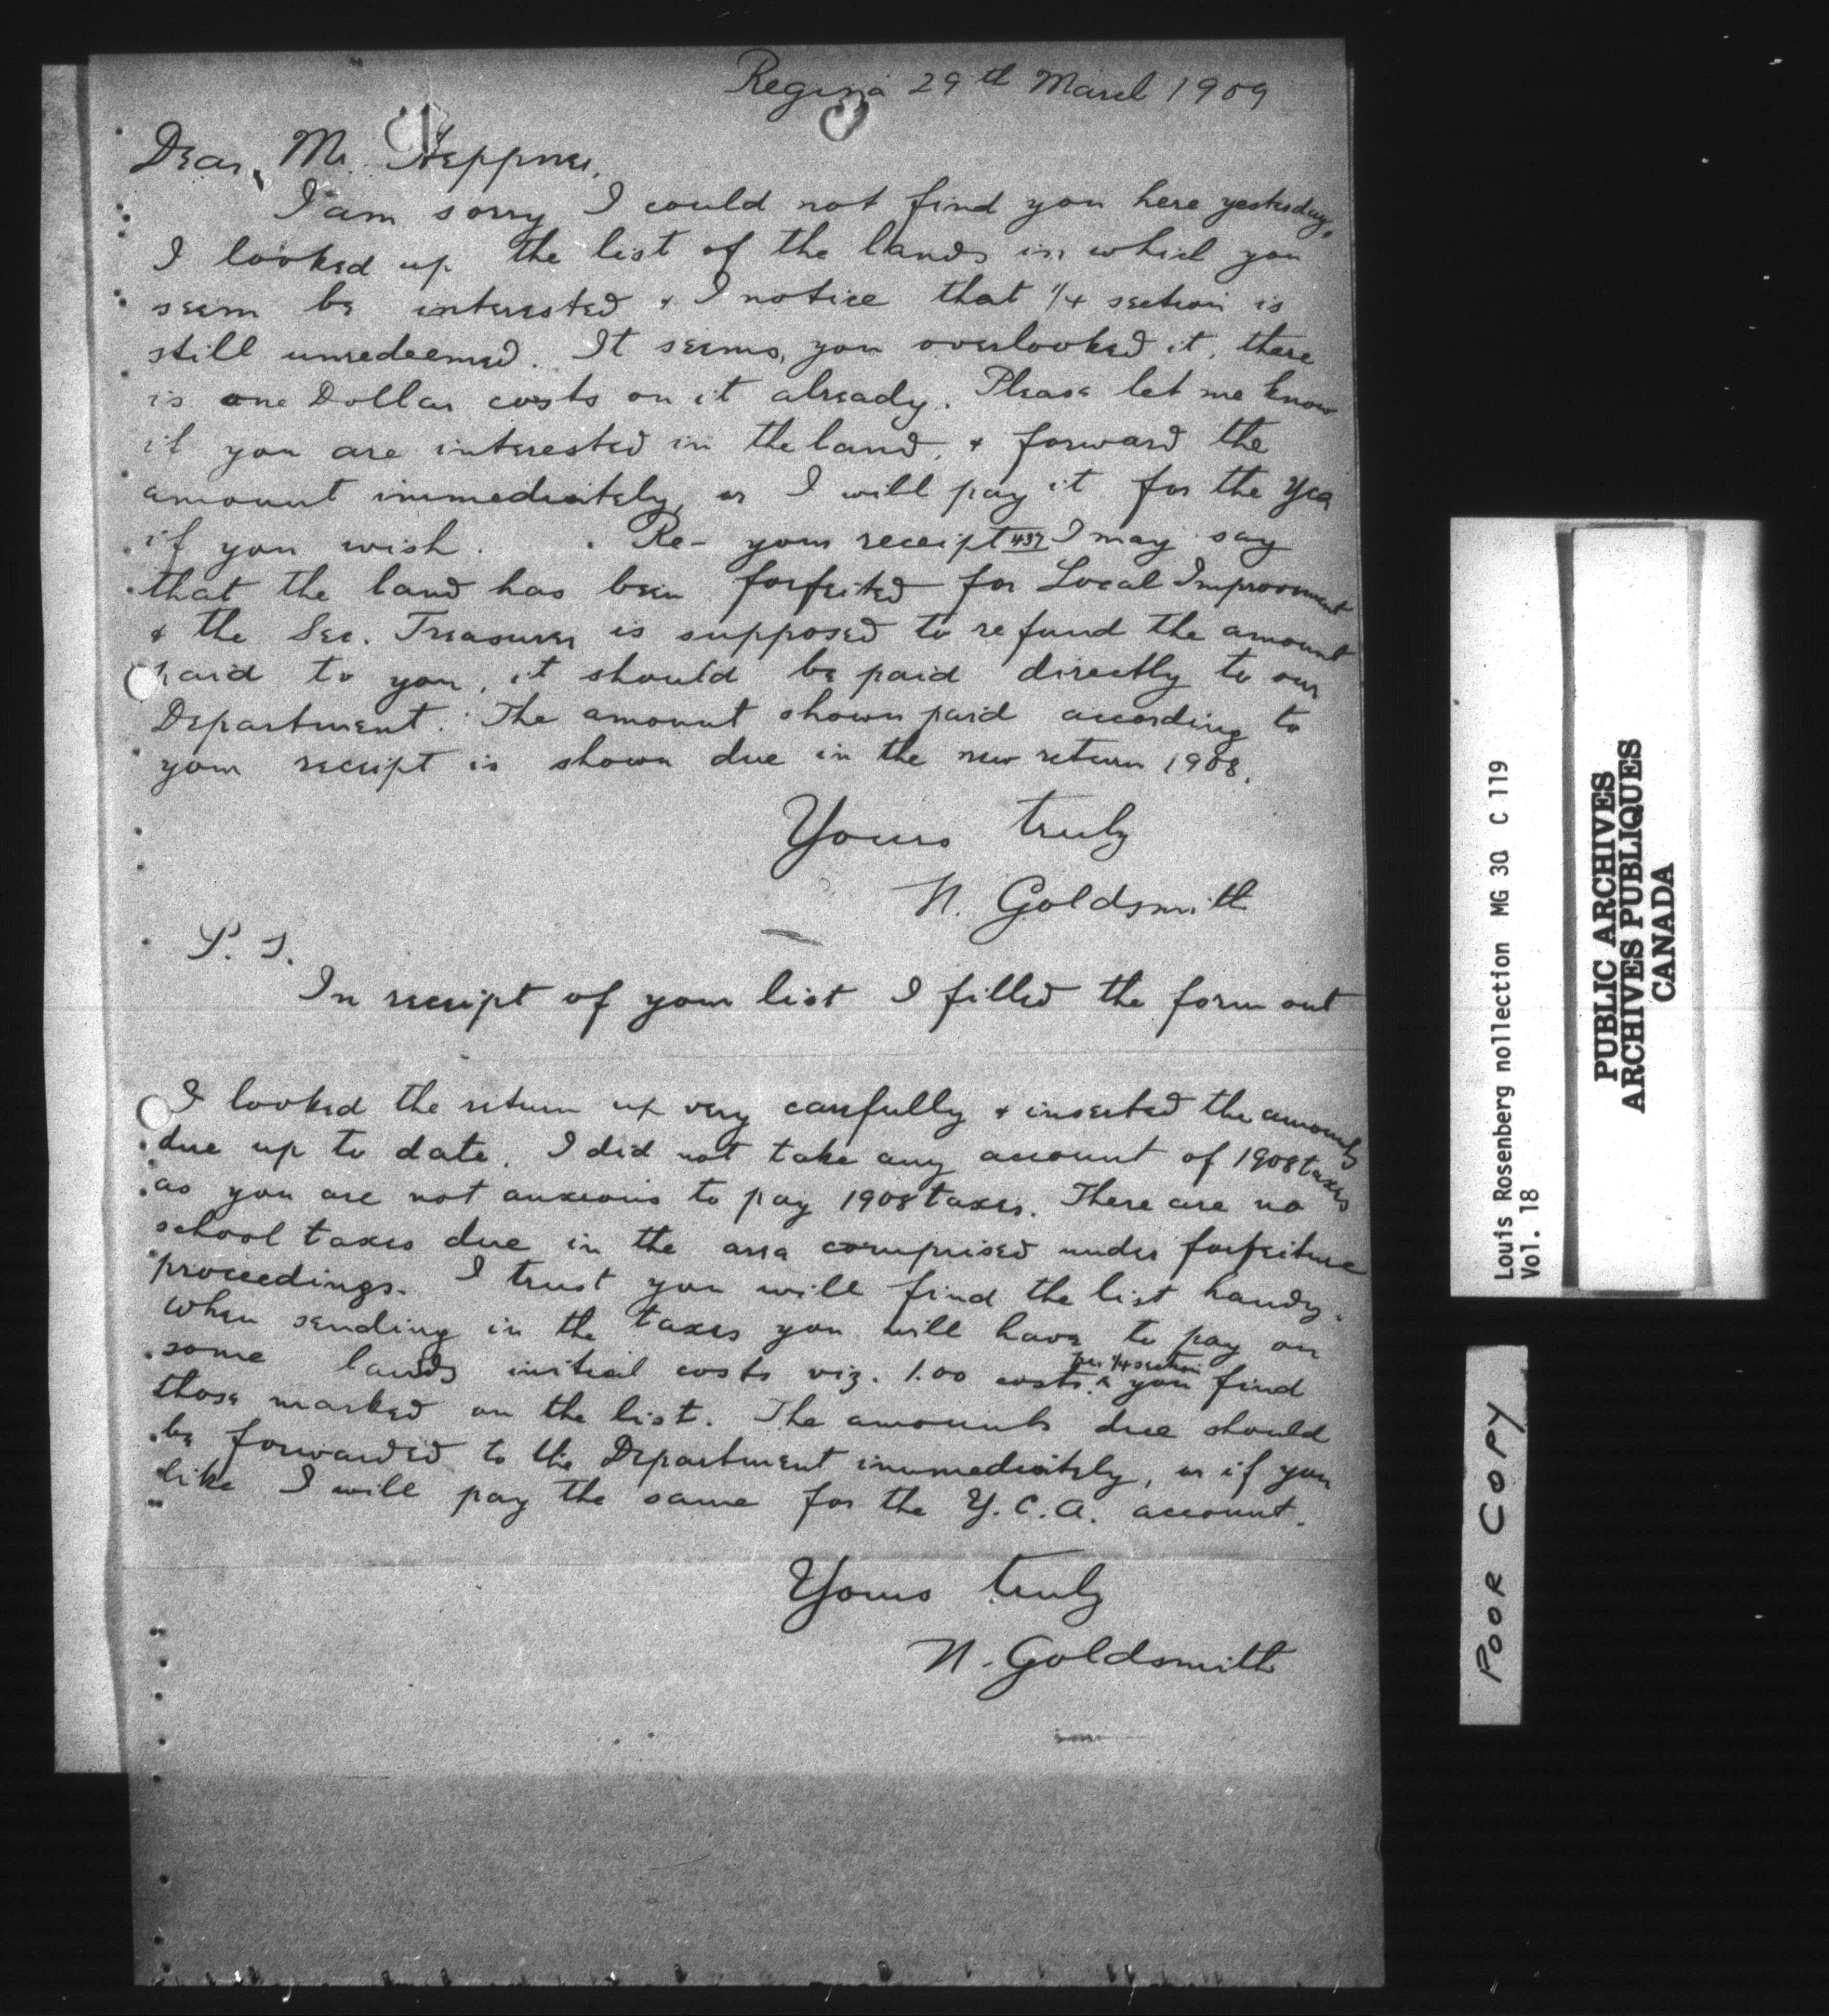 Regina 29th March 1909
Dear, Mr. Heppner,
I am sorry I could not find you here yesterday,
I looked up the list of the lands in which you
seem be interested & I notice that 1/4 section is
still unredeemed. It seems, you overlooked it, there
is one Dollar costs on it already. Please let me know
if you are interested in the land, & forward the
amount immediately, or I will pay it for the Yca
if you wish. Re- your receipt 437 I may say
that the land has been forfeited for Local Improvment
& the Sec. Treasurer is supposed to refund the amount
paid to you, it should be paid directly to our
Department. The amount shown paid according to
your receipt is shown due in the new return 1908.
Yours truly
N. Goldsmith
P. S.
In receipt of your list I filled the form out
I looked the return up very carefully & inserted the amounts
due up to date. I did not take any account of 1908 taxes
as you are not anxious to pay 1908 taxes. There are no
school taxes due in the area comprised under forfeiture
proceedings. I trust you will find the list handy.
When sending in the taxes you will have to pay on
some lands initial costs viz. 1.00 costs per 1/4 section you find
those marked on the list. The amounts due should
be forwarded to the Department immediately, or if you
like I will pay the same for the Y.C.A. account.
Yours truly
N. Goldsmith
Louis Rosenberg nollection MG 30 C 119
Vol. 18
PUBLIC ARCHIVES
ARCHIVES PUBLIQUES
CANADA
POOR COPY